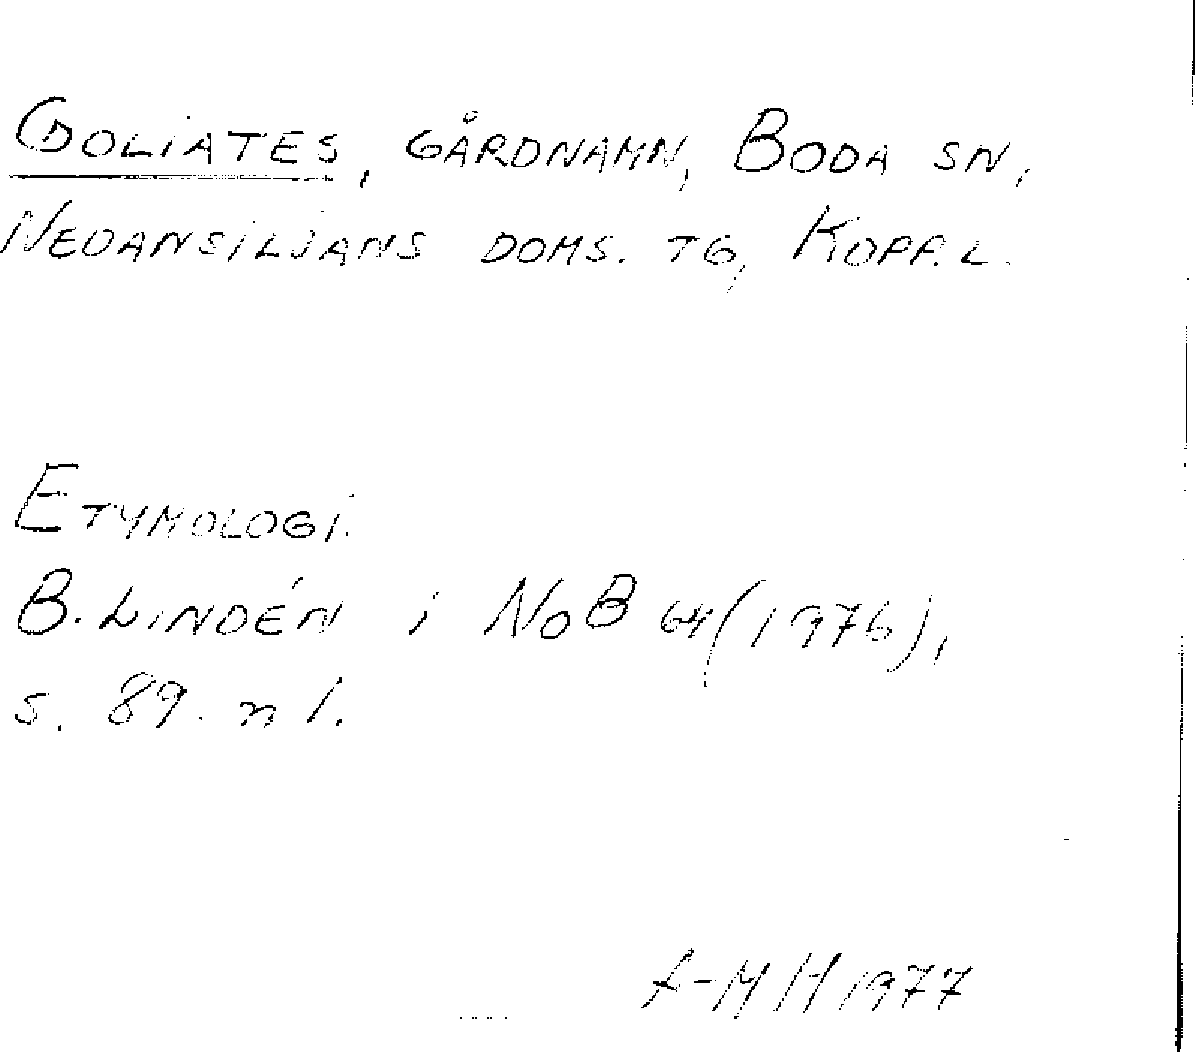 GOLIATES, GÅRDNAMN, BODA SN,
NEDANSILJANS DOMS. TG, KOPP. L.
ETYMOLOGI.
B. LINDÉN i NoB 64 (1976),
s. 89. n 1.
A-MH 1977